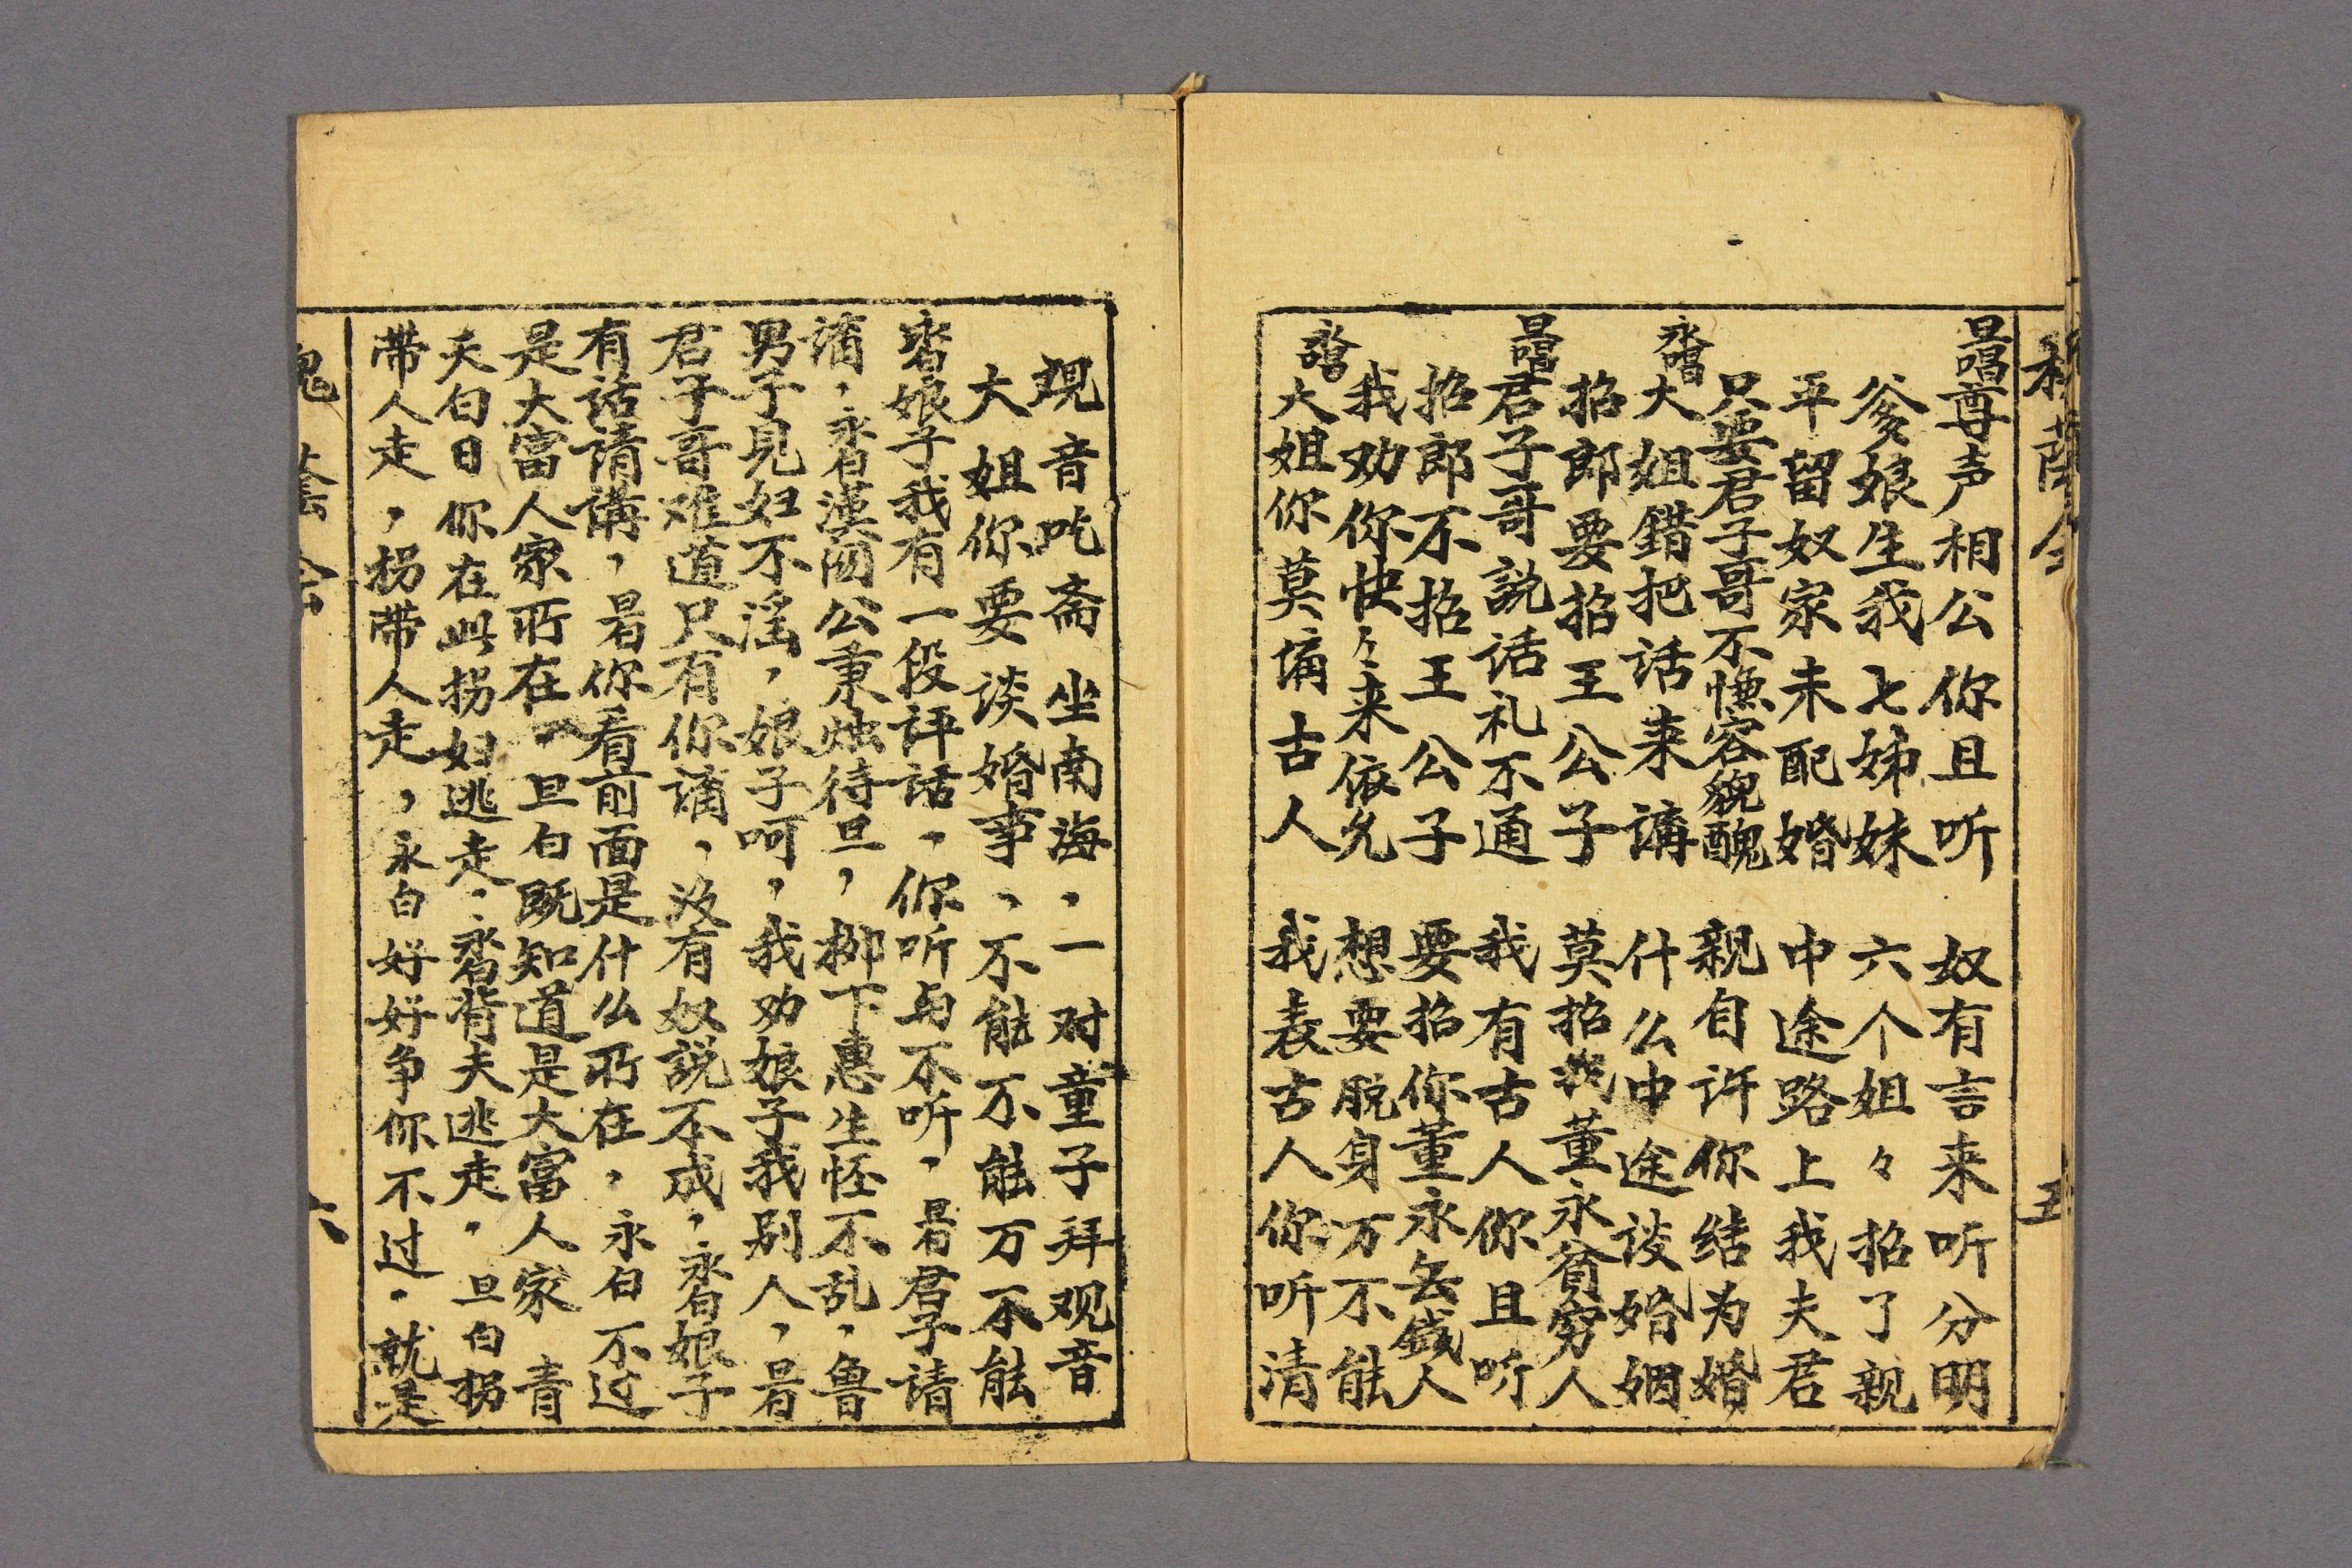 旦唱尊声相公你且听　奴有言来听分明
爹娘生我七姊妹　六个姐々招了亲
平留奴家未配婚　中途路上我夫君
只要君子哥不慊容貌醜　親自许你结为婚
永唱大姐錯把话来講　什么中途谈婚姻
招郎要招王公子　莫招我董永貧穷人
旦唱君子哥説话礼不通　我有古人你且听
招郎不招王公子　要招你董永無錢人
我劝你快々来依允　想要脱身万不能
永唱大姐你莫講古人　我表古人你听清
観音吃斋坐南海，一对童子拜观音
大姐你要谈婚事、不能不能万不能
永白娘子我有一段评話、你听与不听，旦白君子请
講，永白漢関公秉烛待旦，柳下惠生怪不乱，鲁
男子見妇不淫，娘子呵，我劝娘子我别人，旦白
君子哥难道只有你講，没有奴説不成，永白娘子
有話請講，旦白你看前面是什么所在，永白不过
是大富人家所在、旦白既知道是大富人家　青
天白日你在此拐妇逃走，永白背夫逃走，旦白拐
带人走，拐带人走，永白好好争你不过，就是
六